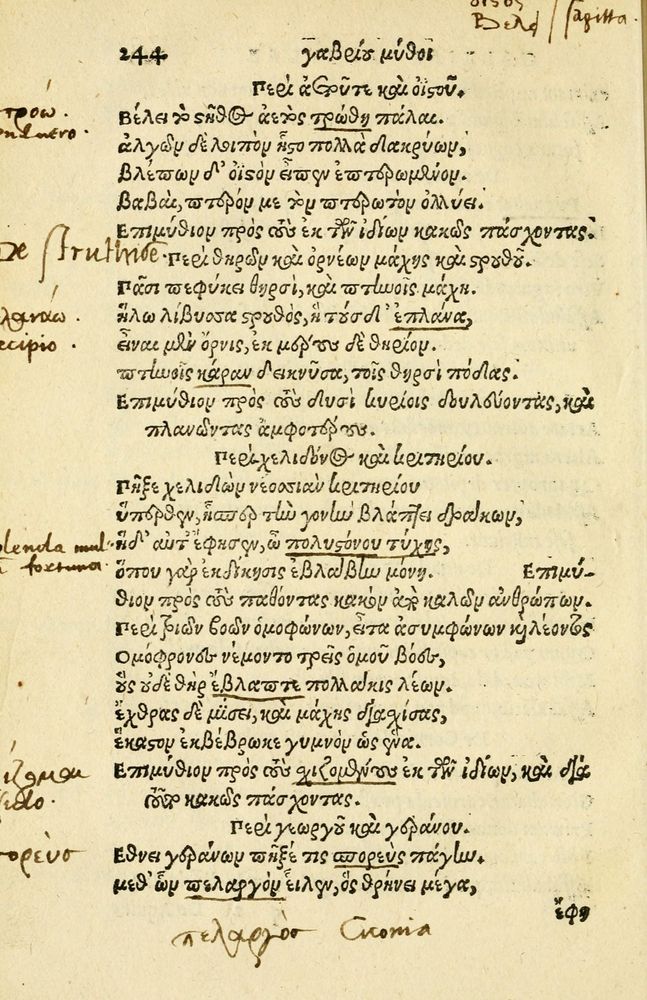 οἰσὸς
Βελος / sagitta.
244 γαβρίου μύθοι
Περὶ ἀετοῦ τε καὶ ὀϊστοῦ.
τρόω.
Βέλει τὸ στῆθος ἀετὸς τρώθη πάλαι.
vulnero.
ἀλγῶν δὲ λοιπὸν ἧστο πολλὰ δακρύων,
βλέπων δ' ὀϊστὸν εἶπεν ἐπτερωμένον.
Βαβαὶ, πτερόν με τὸν πτερωτὸν ὀλλύει.
Επιμύθιον πρὸς τοὺς ἐκ τῶν ἰδίων κακῶς πάσχοντας.
De struthione.
Περὶ θηρῶν καὶ ὀρνέων μάχης καὶ στρουθοῦ.
Πᾶσι πεφύκει θηρσὶ, καὶ πτηνοῖς μάχη.
πλανάω.
ἥλω λίβυσσα στρουθὸς, ἡ τούσδ' ἐπλάνα,
decipio.
εἶναι μὲν ὄρνις, ἐκ μέρους δὲ θηρίον.
πτηνοῖς κάραν δεικνῦσα, τοῖς θηρσὶ πόδας.
Επιμύθιον πρὸς τοὺς δυσὶ κυρίοις δουλεύοντας, καὶ
πλανῶντας ἀμφοτέρους.
Περὶ χελιδόνος καὶ κριτηρίου.
Πῆξε χελιδὼν νεοσσιὰν κριτηρίου
ὕπερθεν, ἧσπερ τὴν γονὴν βλάπτει δράκων,
ἡ δ' αὖτ' ἔφησεν, ὦ πολυστόνου τύχης,
fortuna.
ὅπου γὰρ ἐκδίκησις ἐβλάβην μόνη. Επιμύ-
θιον πρὸς τοὺς παθόντας κακὸν παρὰ καλῶν ἀνθρώπων.
Περὶ τριῶν βοῶν ὁμοφώνων, εἶτα ἀσυμφώνων καὶ λέοντος
Ομόφρονες νέμοντο τρεῖς ὁμοῦ βόες,
οὓς οὐδὲ θὴρ ἔβλαπτε πολλάκις λέων.
ἔχθρας δὲ μίσει, καὶ μάχης διασχίσας,
ἕκαστον ἐκβέβρωκε γυμνὸν ὡς ἕνα.
Επιμύθιον πρὸς τοὺς σχιζομένους ἐκ τῶν ἰδίων, καὶ διὰ
τοῦτο κακῶς πάσχοντας.
Περὶ γεωργοῦ καὶ γεράνου.
σπορεὺς
Εθνει γεράνων πῆξέ τις σπορεὺς πάγην.
μεθ' ὧν πελαργὸν εἷλεν, ὃς θρήνει μέγα,
ἔφη
πελαργὸς Ciconia